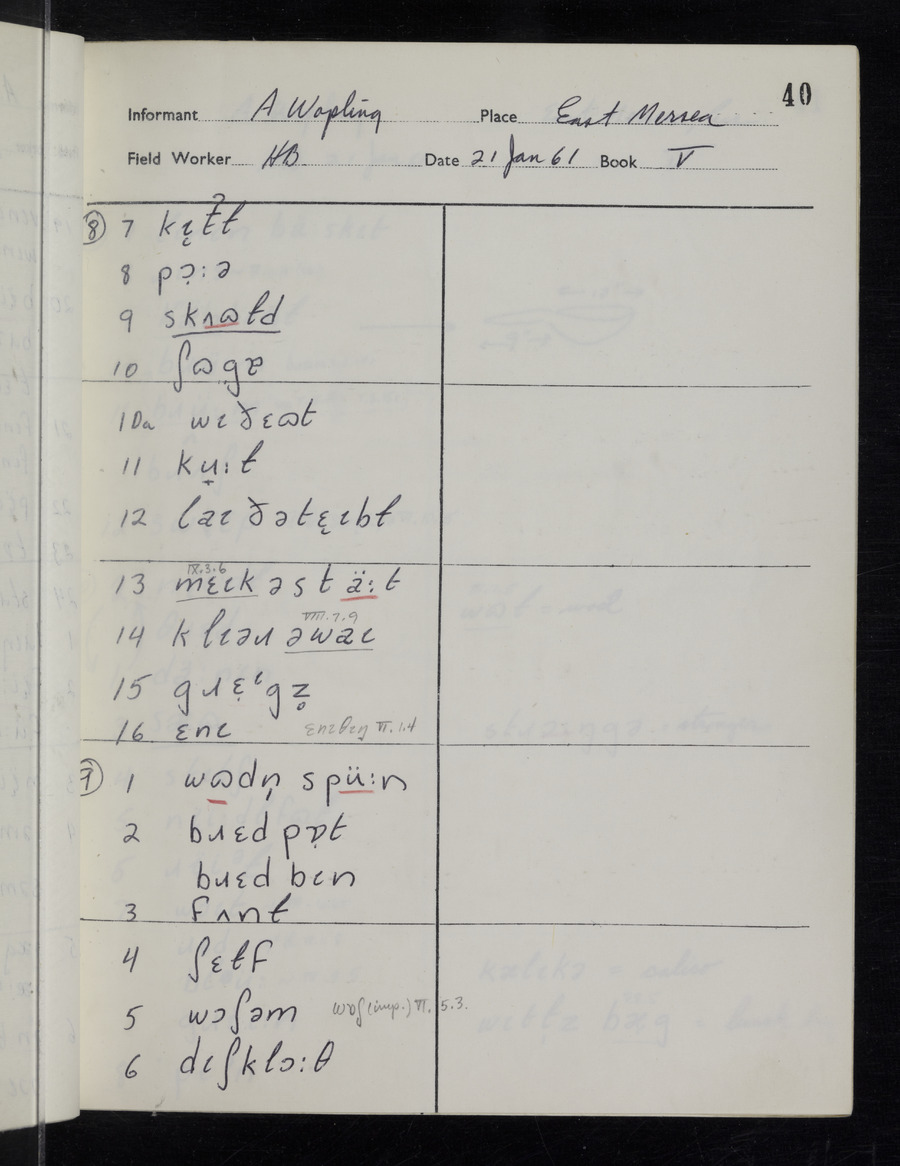 40
Informant A Wopling Place East Mersea
Field Worker HB Date 21 Jan 61 Book V
⑧ 7 kɪ̨tɫ
8 pɔ̣:ə
9 skʌɷɫd
10 ʃɷgɐ
10a wɪ ðɛɷt
11 kṵ:ɫ
12 laɪ ðətɛ̨ɪbɫ
IX.3.6
13 mɛɪk əstä:t
VIII.7.9
14 klɪəɹ əwaɪ
15 gɹɛ̣ɪgz̥
16 ɛnɪ ɛnɪθɪŋ VI.1.4
⑨ 1 wɷdn̩ spü:n
2 bɹɛd pɒ̣t
bɹɛd bɪn
3 fʌnɫ
4 ʃɛɫf
5 wɔʃəm wɒʃ (imp.) VI. 5.3.
6 dɪʃklɔ:θ